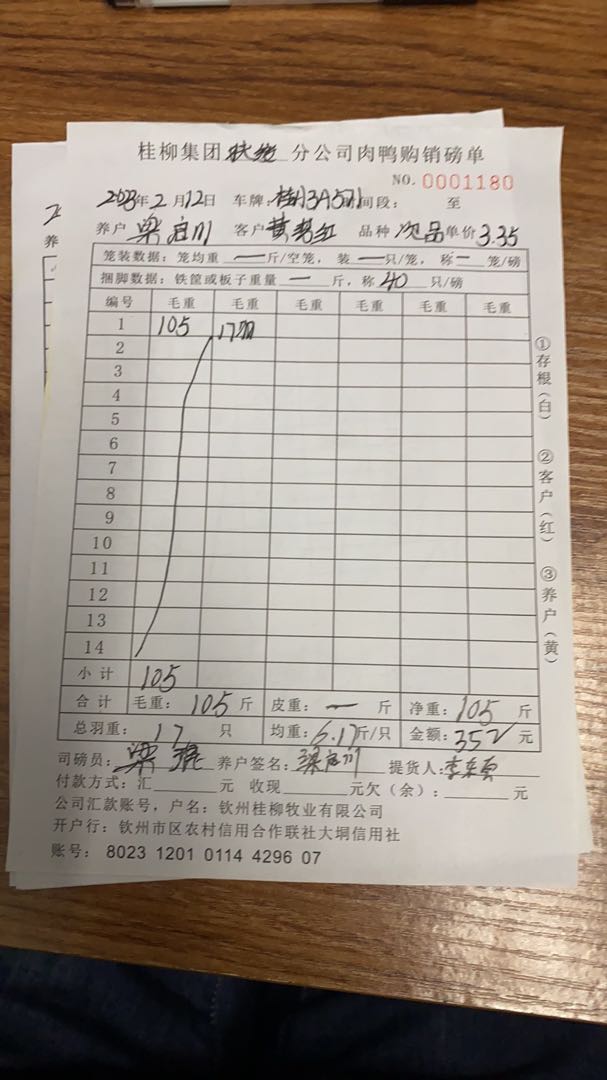 桂柳集团 分公司肉鸭购销磅单
NO. 0001180
2023年2月12日 车牌: 时间段: 至
养户 梁启川 客户 品种 次品 单价 3.35
笼装数据: 笼均重 — 斤/空笼, 装 — 只/笼, 称 — 笼/磅
捆脚数据: 铁筐或板子重量 — 斤, 称 40 只/磅
编号 毛重 毛重 毛重 毛重 毛重 毛重
1 105 17羽
2
3
4
5
6
7
8
9
10
11
12
13
14
小计 105
合计 毛重: 105 斤 皮重: — 斤 净重: 105 斤
总羽重: 17 只 均重: 6.17 斤/只 金额: 352 元
司磅员: 梁 养户签名: 梁启川 提货人:
付款方式: 汇 元 收现 元欠(余): 元
公司汇款账号, 户名: 钦州桂柳牧业有限公司
开户行: 钦州市区农村信用合作联社大垌信用社
账号: 8023 1201 0114 4296 07
①存根(白) ②客户(红) ③养户(黄)
养